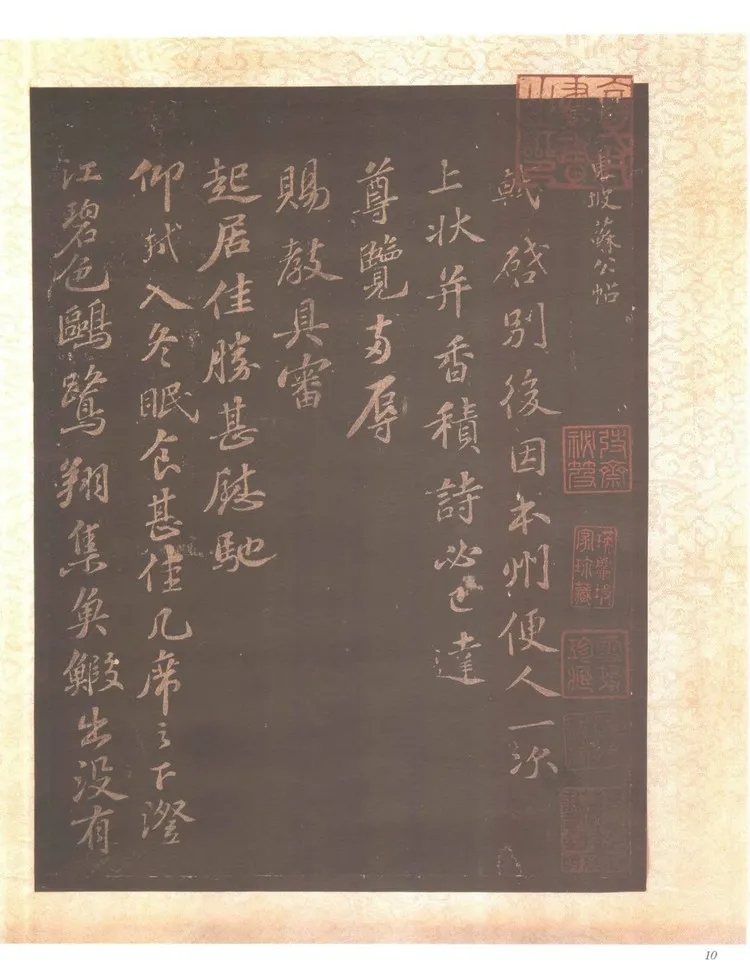 東坡蘇公帖
軾啓別後因本州便人一次
上状并香積詩必已達
尊覽兩辱
賜教具審
起居佳勝甚慰馳
仰軾入冬眠食甚佳几席之下澄
江碧色鷗鷺翔集魚鰕出没有
10